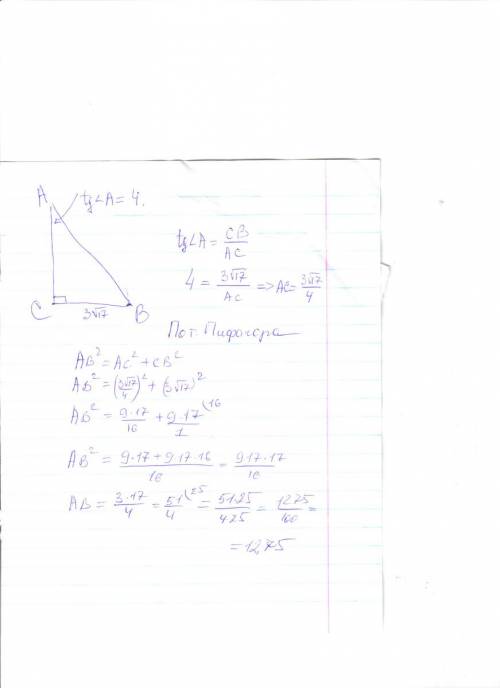 A
tg∠A = 4.
C
3√17
B
tg∠A = CB/AC
4 = 3√17/AC => AC = 3√17/4
По т. Пифагора
AB² = AC² + CB²
AB² = (3√17/4)² + (3√17)²
AB² = 9·17/16 + 9·17/1 (16
AB² = 9·17+9·17·16/16 = 9·17·17/16
AB = 3·17/4 = 51/4 (25 = 51·25/4·25 = 1275/100 =
= 12,75